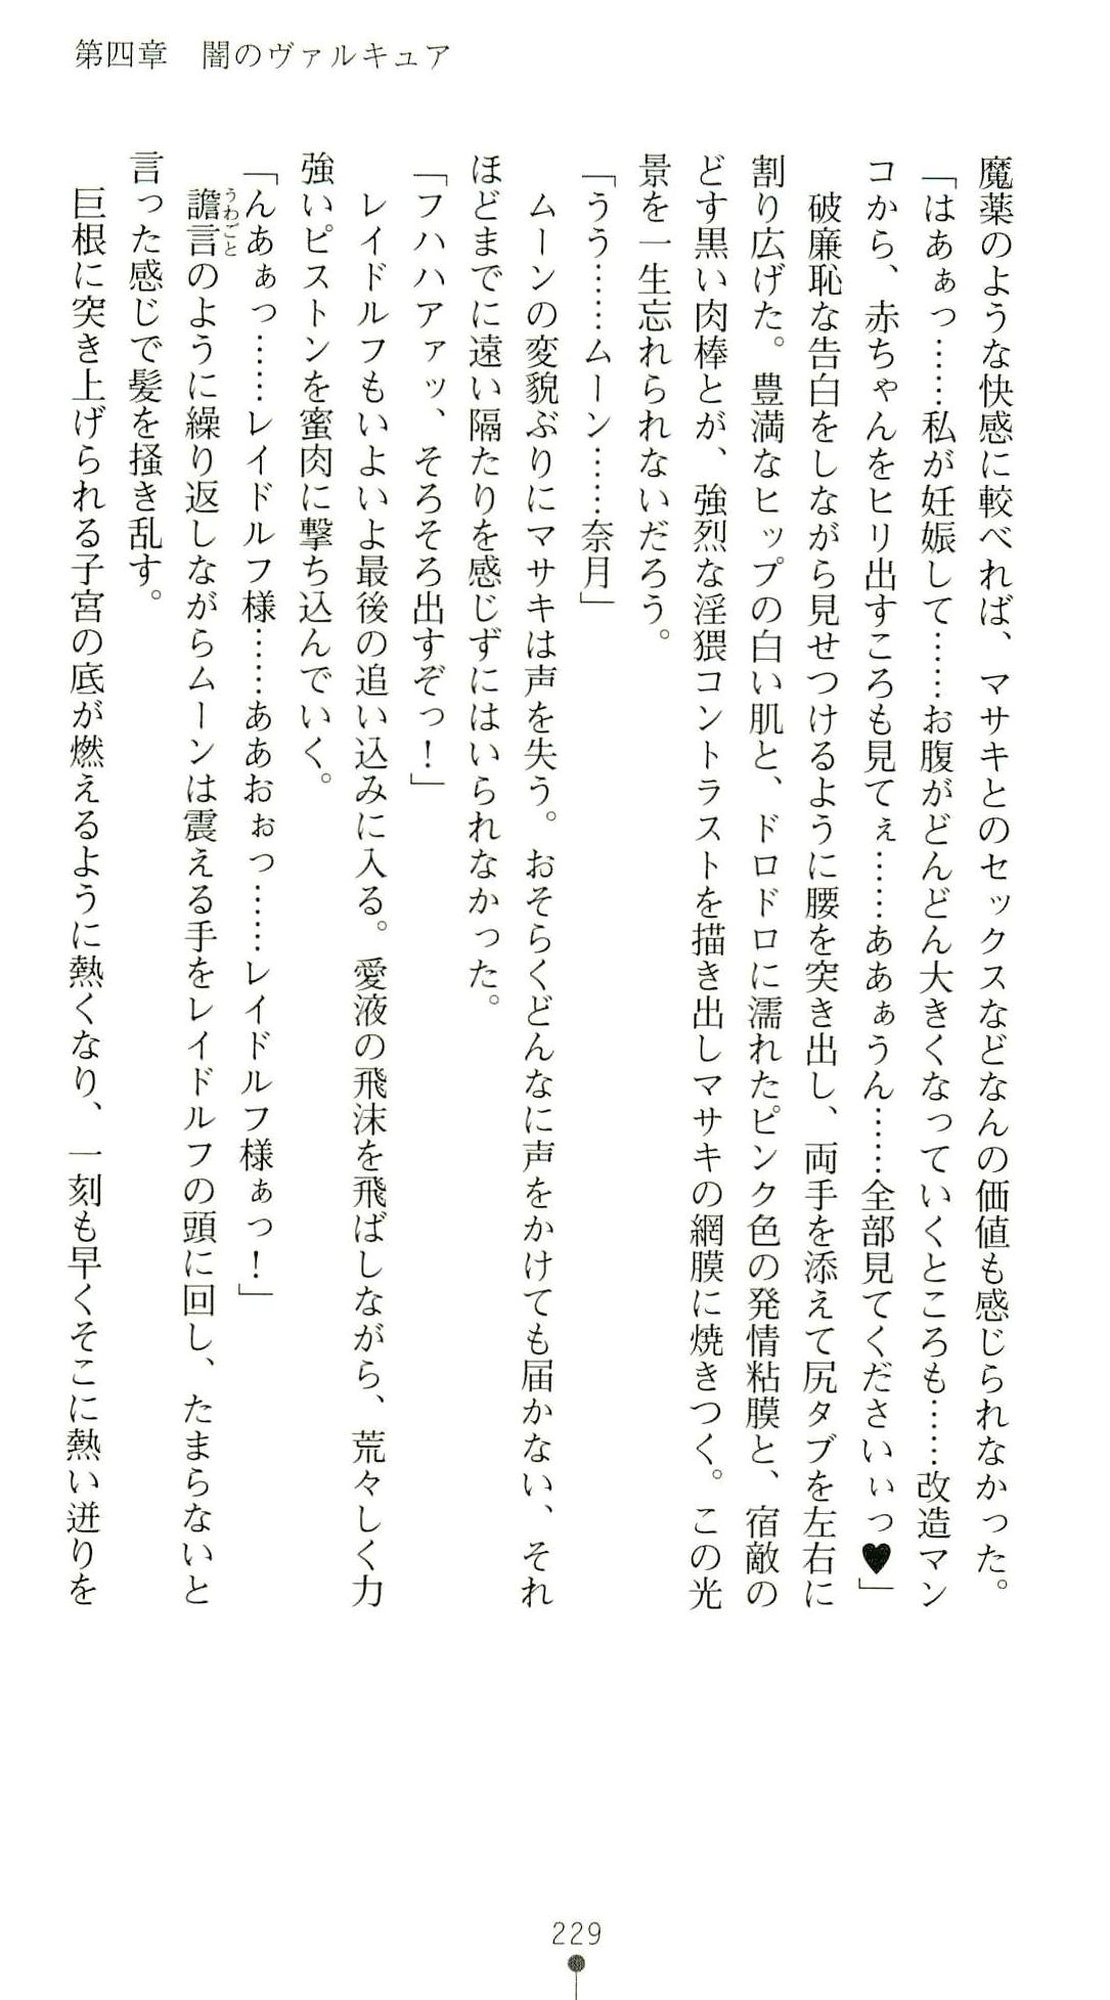 第四章　闇のヴァルキュア
魔薬のような快感に較べれば、マサキとのセックスなどなんの価値も感じられなかった。
「はあぁっ……私が妊娠して……お腹がどんどん大きくなっていくところも……改造マン
コから、赤ちゃんをヒリ出すころも見てぇ……ああぁうん……全部見てくださいぃっ♥」
　破廉恥な告白をしながら見せつけるように腰を突き出し、両手を添えて尻タブを左右に
割り広げた。豊満なヒップの白い肌と、ドロドロに濡れたピンク色の発情粘膜と、宿敵の
どす黒い肉棒とが、強烈な淫猥コントラストを描き出しマサキの網膜に焼きつく。この光
景を一生忘れられないだろう。
「うう……ムーン……奈月」
　ムーンの変貌ぶりにマサキは声を失う。おそらくどんなに声をかけても届かない、それ
ほどまでに遠い隔たりを感じずにはいられなかった。
「フハハアァッ、そろそろ出すぞっ！」
　レイドルフもいよいよ最後の追い込みに入る。愛液の飛沫を飛ばしながら、荒々しく力
強いピストンを蜜肉に撃ち込んでいく。
「んあぁっ……レイドルフ様……ああおぉっ……レイドルフ様ぁっ！」
うわごと
　譫言のように繰り返しながらムーンは震える手をレイドルフの頭に回し、たまらないと
言った感じで髪を掻き乱す。
　巨根に突き上げられる子宮の底が燃えるように熱くなり、一刻も早くそこに熱い迸りを
229